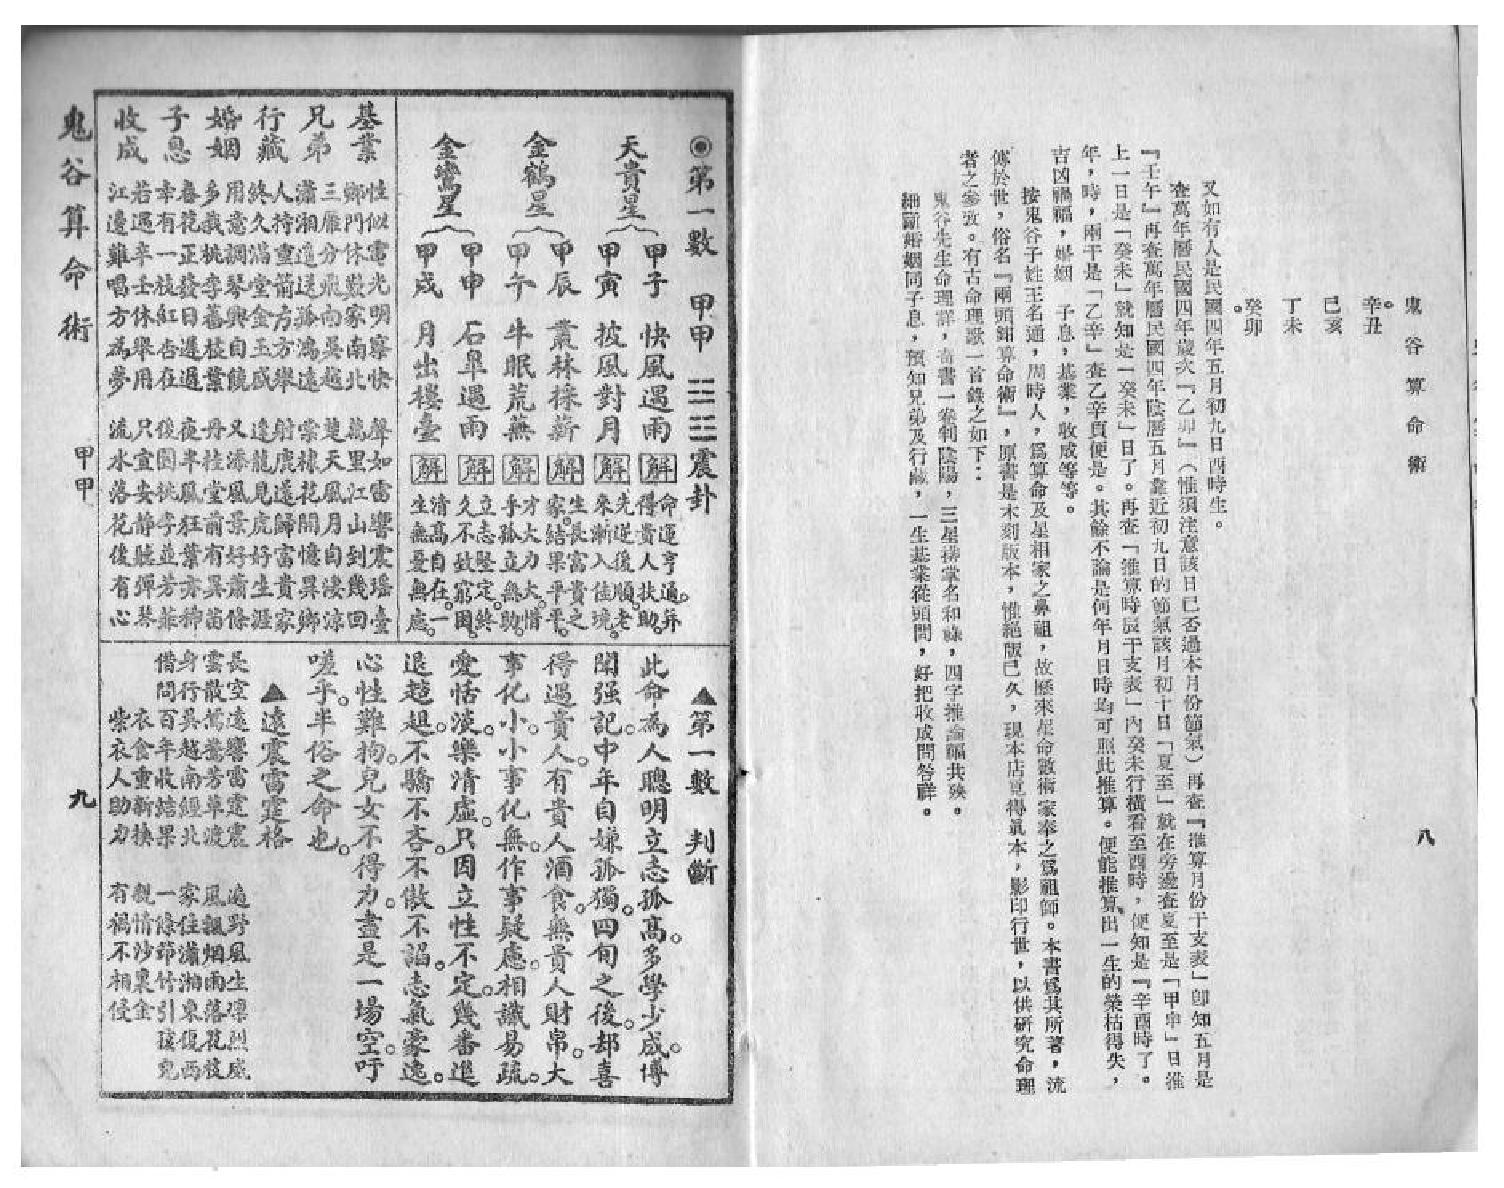 鬼谷算命術
八
辛丑。
巳亥
丁未
癸卯。
又如有人是民國四年五月初九日酉時生。
查萬年曆民國四年歲次『乙卯』(惟須注意該日已否過本月份節氣)再查『推算月份干支表」卽知五月是
『壬午』再查萬年曆民國四年陰曆五月靠近初九日的節氣該月初十日「夏至」就在旁邊查夏至是「甲申」日推
上一日是「癸未」就知是「癸未」日了。再查「推算時辰干支表」內癸未行橫看至酉時,便知是『辛酉時了。
年,時,兩干是「乙辛」查乙辛頁便是。其餘不論是何年月日時均可照此推算。便能推算出一生的榮枯得失,
吉凶禍福,婚姻 子息,基業,收成等等。
按鬼谷子姓王名通,周時人,爲算命及星相家之鼻祖,故歷來星命數術家奉之爲祖師。本書爲其所著,流
傳於世,俗名『兩頭鉗算命術』,原書是木刻版本,惟絕版已久,現本店覓得眞本,影印行世,以供研究命理
者之參攷。有古命理歌一首錄之如下:
鬼谷先生命理詳,奇書一卷判陰陽,三星掛掌名和祿,四字推論福共殃。
細斷婚姻同子息,預知兄弟及行藏,一生基業從頭問,好把收成問答祥。
◉第一數 甲甲 ☳☳震卦
天貴星
甲子 快風遇雨 解 命運亨通。幷得貴人扶助。
甲寅 披風對月 解 先逆後順。老來漸入佳境。
金鶴星
甲辰 叢林採薪 解 生長富貴之家。結果平平。
甲午 牛眠荒蕪 解 才大力大。惜手孤立無助。
金鸞星
甲申 石阜遇雨 解 立志堅定。終久不致窮困。
甲戌 月出樓臺 解 清高自在。一生無憂無慮。
基業
性似雷光明察快 聲如雷響震瑤臺
鄉門休歎家南北 萬里江山到幾回
兄弟
三雁分飛向吳越 楚天風月自淒涼
瀟湘遥送孤鴻遠 棠棣花開憶異鄉
行藏
人持重箭方方舉 射鹿送歸富貴家
終久滿堂金玉成 逢龍見虎好生涯
婚姻
用意調琴興自饒 又添風景好蕭條
多栽桃李舊枝葉 丹桂堂前有異苗
子息
春花正發日遲遲 夜半風狂葉亦稀
幸有一枝紅杏在 後園桃李並芳菲
收成
若遇辛壬休舉用 只宜安靜聽彈琴
江邊難唱方為夢 流水落花後有心
▲第一數 判斷
此命為人聰明立志孤高。多學少成。博
聞强記。中年自嫌孤獨。四旬之後。却喜
得遇貴人。有貴人酒食。無貴人財帛。大
事化小。小事化無。作事疑慮。相識易疏。
愛恬淡。樂清虛。只因立性不定。幾番進
退趑趄。不驕不吝。不傲不謟。志氣豪逸。
心性難拘。兒女不得力。盡是一場空。吁
嗟乎。半俗之命也。
▲遠震雷霆格
長空遠響雷霆震 遍野風生凜烈威
雲散鴛鴦芳草渡 風飄烟雨落花枝
身行吳越南經北 家住瀟湘東復西
借問百年收結果 一條節竹引孩兒
衣食重新換 親情沙裏金
紫衣人助力 有禍不相侵
鬼谷算命術
甲甲
九